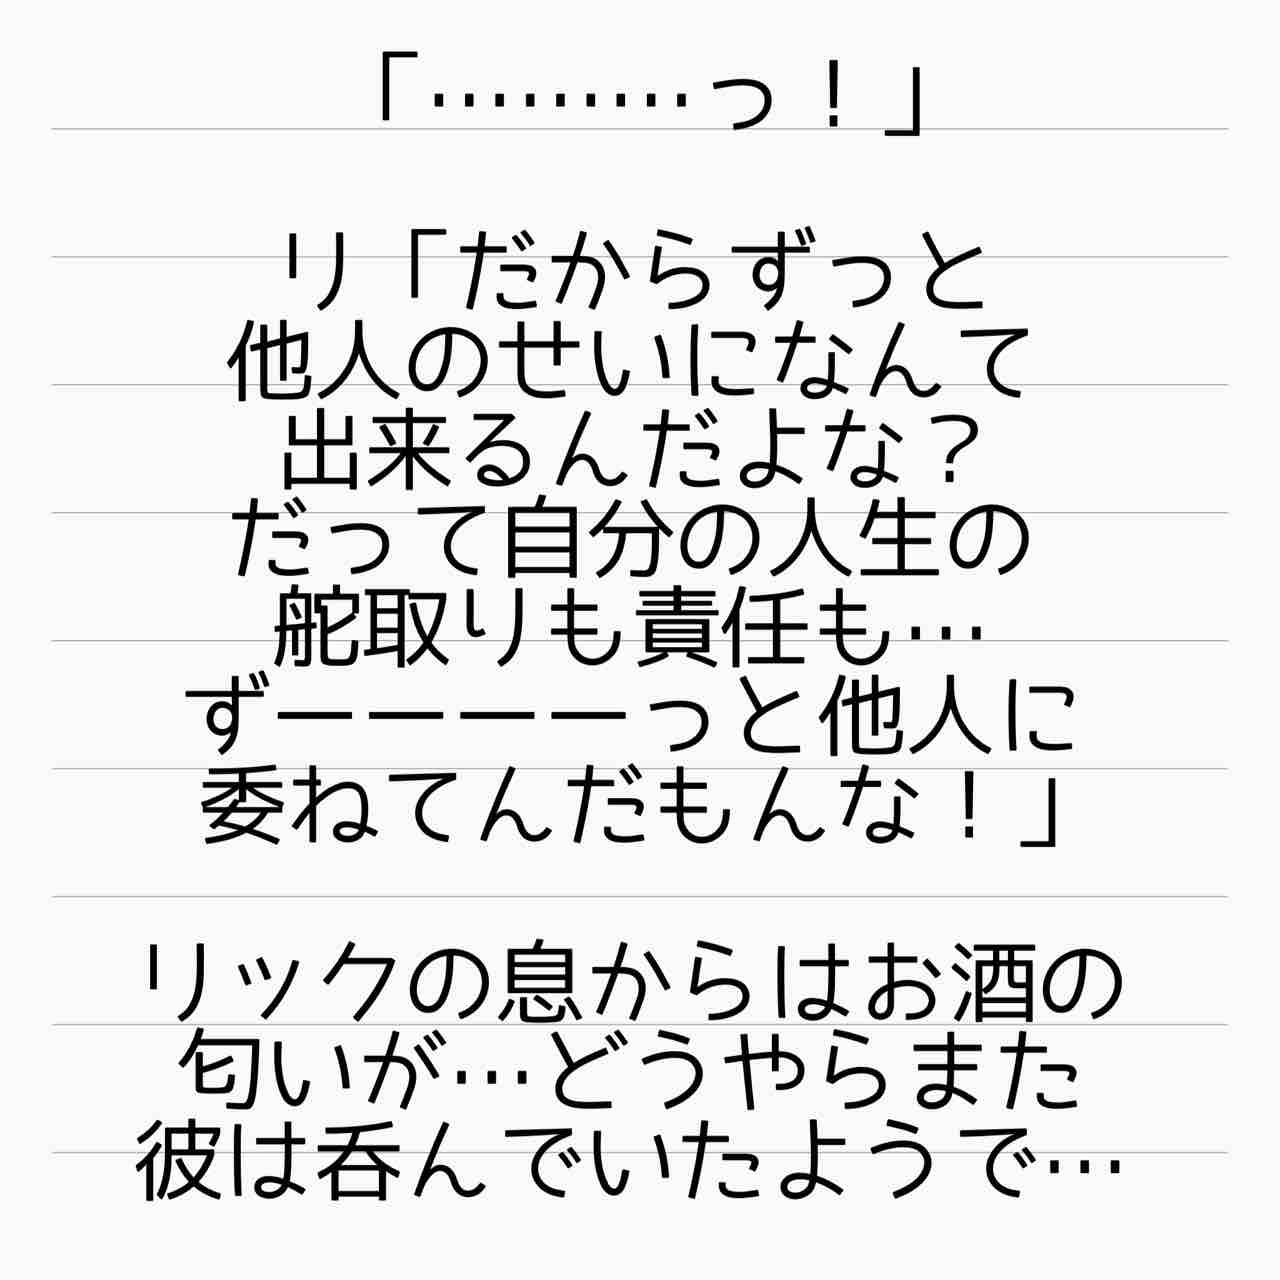 「………っ！」
リ「だからずっと
他人のせいになんて
出来るんだよな？
だって自分の人生の
舵取りも責任も…
ずーーーーっと他人に
委ねてんだもんな！」
リックの息からはお酒の
匂いが…どうやらまた
彼は呑んでいたようで…